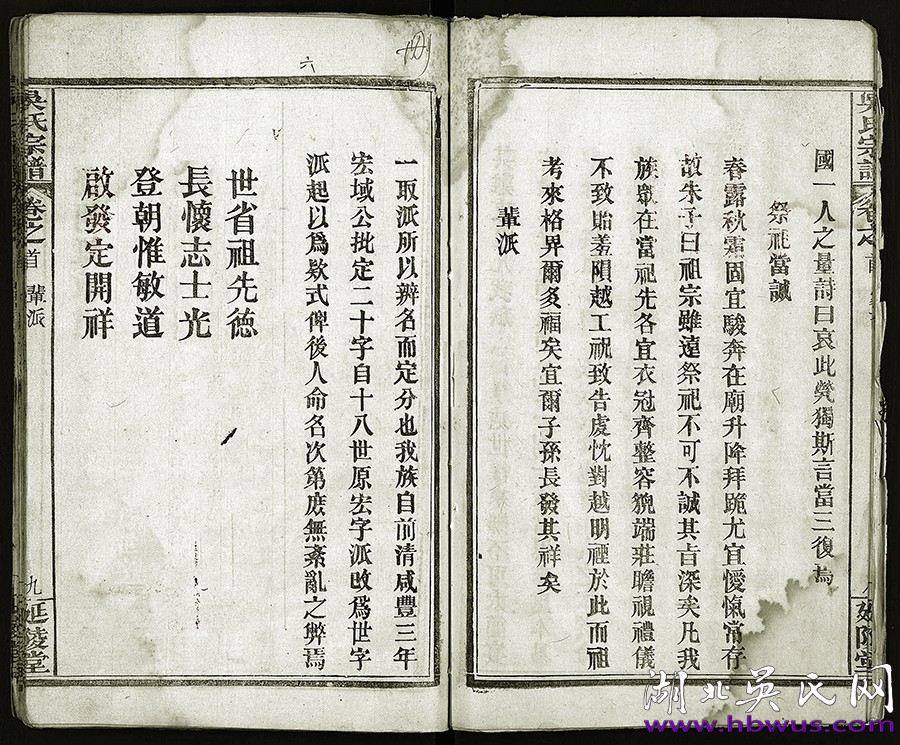 國一人之量詩曰哀此煢獨斯言當三復焉
祭祀當誠
春露秋霜固宜駿奔在廟升降拜跪尤宜僾愾常存
故朱子曰祖宗雖遠祭祀不可不誠其旨深矣凡我
族眾在當祀先各宜衣冠齊整容貌端莊瞻視禮儀
不致貽羞隕越工祝致告虔忱對越明禋於此而祖
考來格畀爾多福矣宜爾子孫長發其祥矣
輩派
吳氏宗譜
卷之
八
延陵堂
六
一取派所以辨名而定分也我族自前清咸豐三年
宏域公批定二十字自十八世原宏字派改爲世字
派起以爲欵式俾後人命名次第庶無紊亂之弊焉
世省祖先德
長懷志士光
登朝惟敏道
啟發定開祥
吳氏宗譜
卷之首
輩派
九
延陵堂
湖北吳氏网
www.hbwus.com